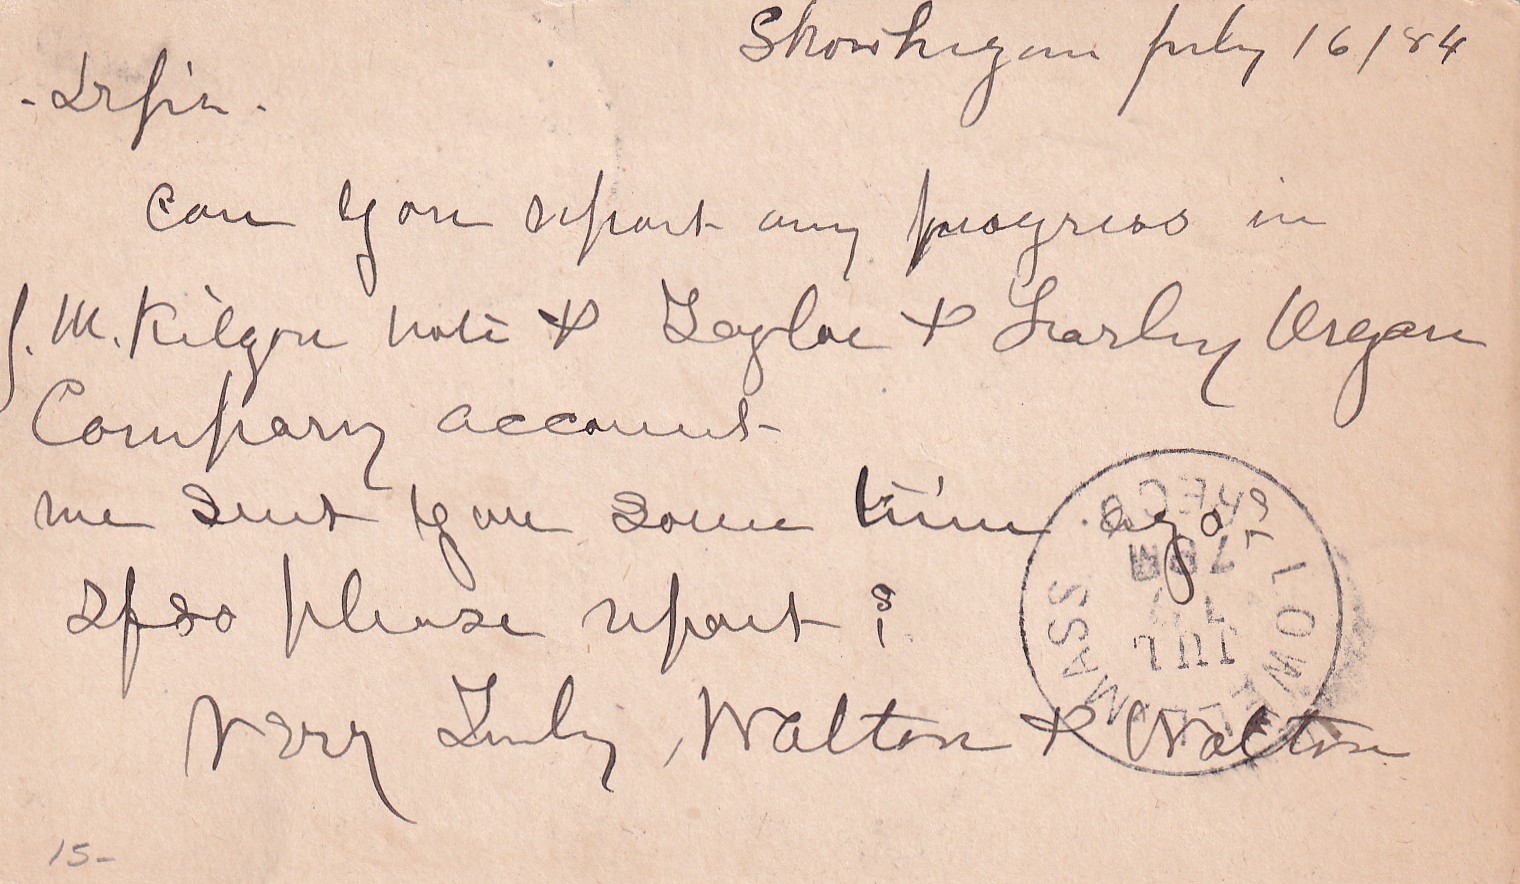 Skowhegan July 16/84
Dr Sir
Can you report any progress in
J. M. Kilgore note & Taylor & Farley Organ
Company account
we sent you some time ago
please report
Very Truly Walton & Walton
LOWELL MASS
REC'D
7 PM
JUL
15-